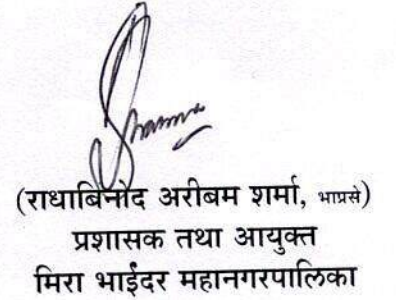 Sharma
(राधाबिनोद अरीबम शर्मा, भाप्रसे)
प्रशासक तथा आयुक्त
मिरा भाईंदर महानगरपालिका